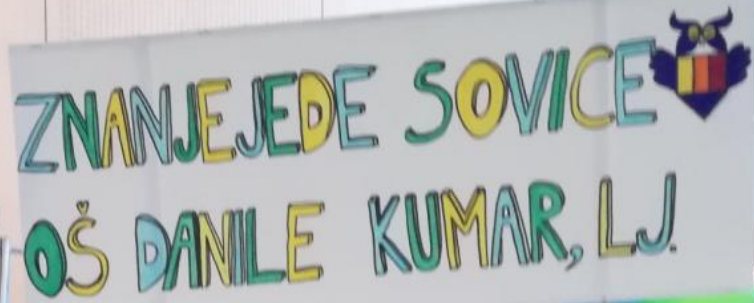 ZNANJEJEDE SOVICE
OŠ DANILE KUMAR, LJ.